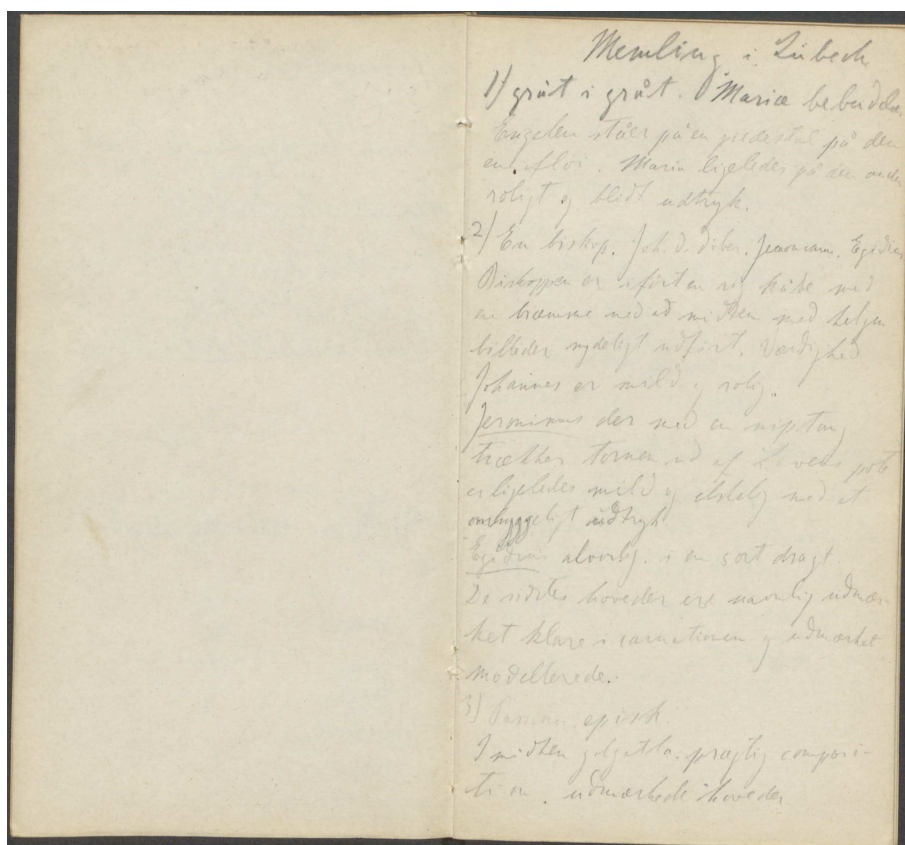 Memling i Lübeck
1) gråt i gråt. Mariæ bebudelse.
Engelen står på en piedestal på den
en fløi. Maria ligeledes på den anden
roligt og blidt udtryk.
2) En biskop. Joh. d. døber. Jeronimus. Egidius
Biskoppen er iført en rig kåbe med
en bræmme ned ad midten med helgen
billeder nydeligt udført. Værdighed
Johannes er mild og rolig.
Jeronimus der med en niptang
trækker tornen ud af Løvens pote
er ligeledes mild og elskelig med et
omhyggeligt udtryk.
Egidius alvorlig. i en sort dragt.
De sidstes hoveder ere navnlig udmær-
ket klare i carnationen og udmærket
modellerede.
3) epish.
I midten golgatha. prægtig composi-
tion. udmærkede hoveder